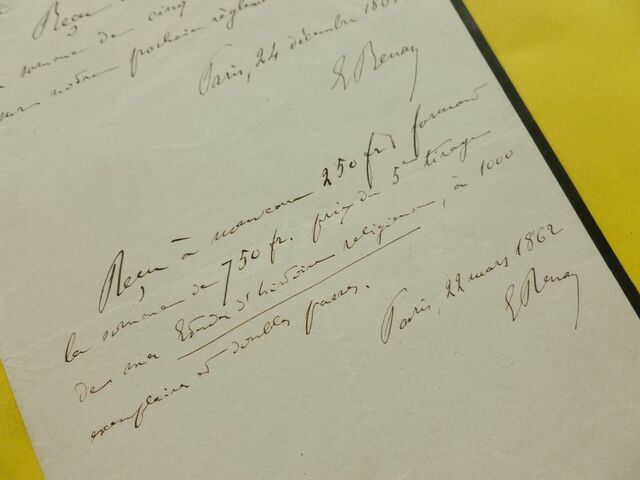 Reçu
somme de cinq
sur notre prochain règlem
Paris, 24 décembre 1861
E Renan
Reçu à nouveau 250 fr. formant
la somme de 750 fr. prix du 5e tirage
de mes Études d'histoire religieuse, à 1000
exemplaires et doubles passes.
Paris, 22 mars 1862
E Renan